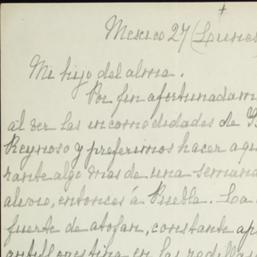 Mexico 27 (Lunes
Mi hijo del alma.
Por fin afortunadam
al ver las incomodidades de
Reynoso y preferimos hacer aqu
rante algo mas de una semana
alivio, entonces á Puebla. La
fuerte de atofan, constante ap
antiflogestina en las rodillas